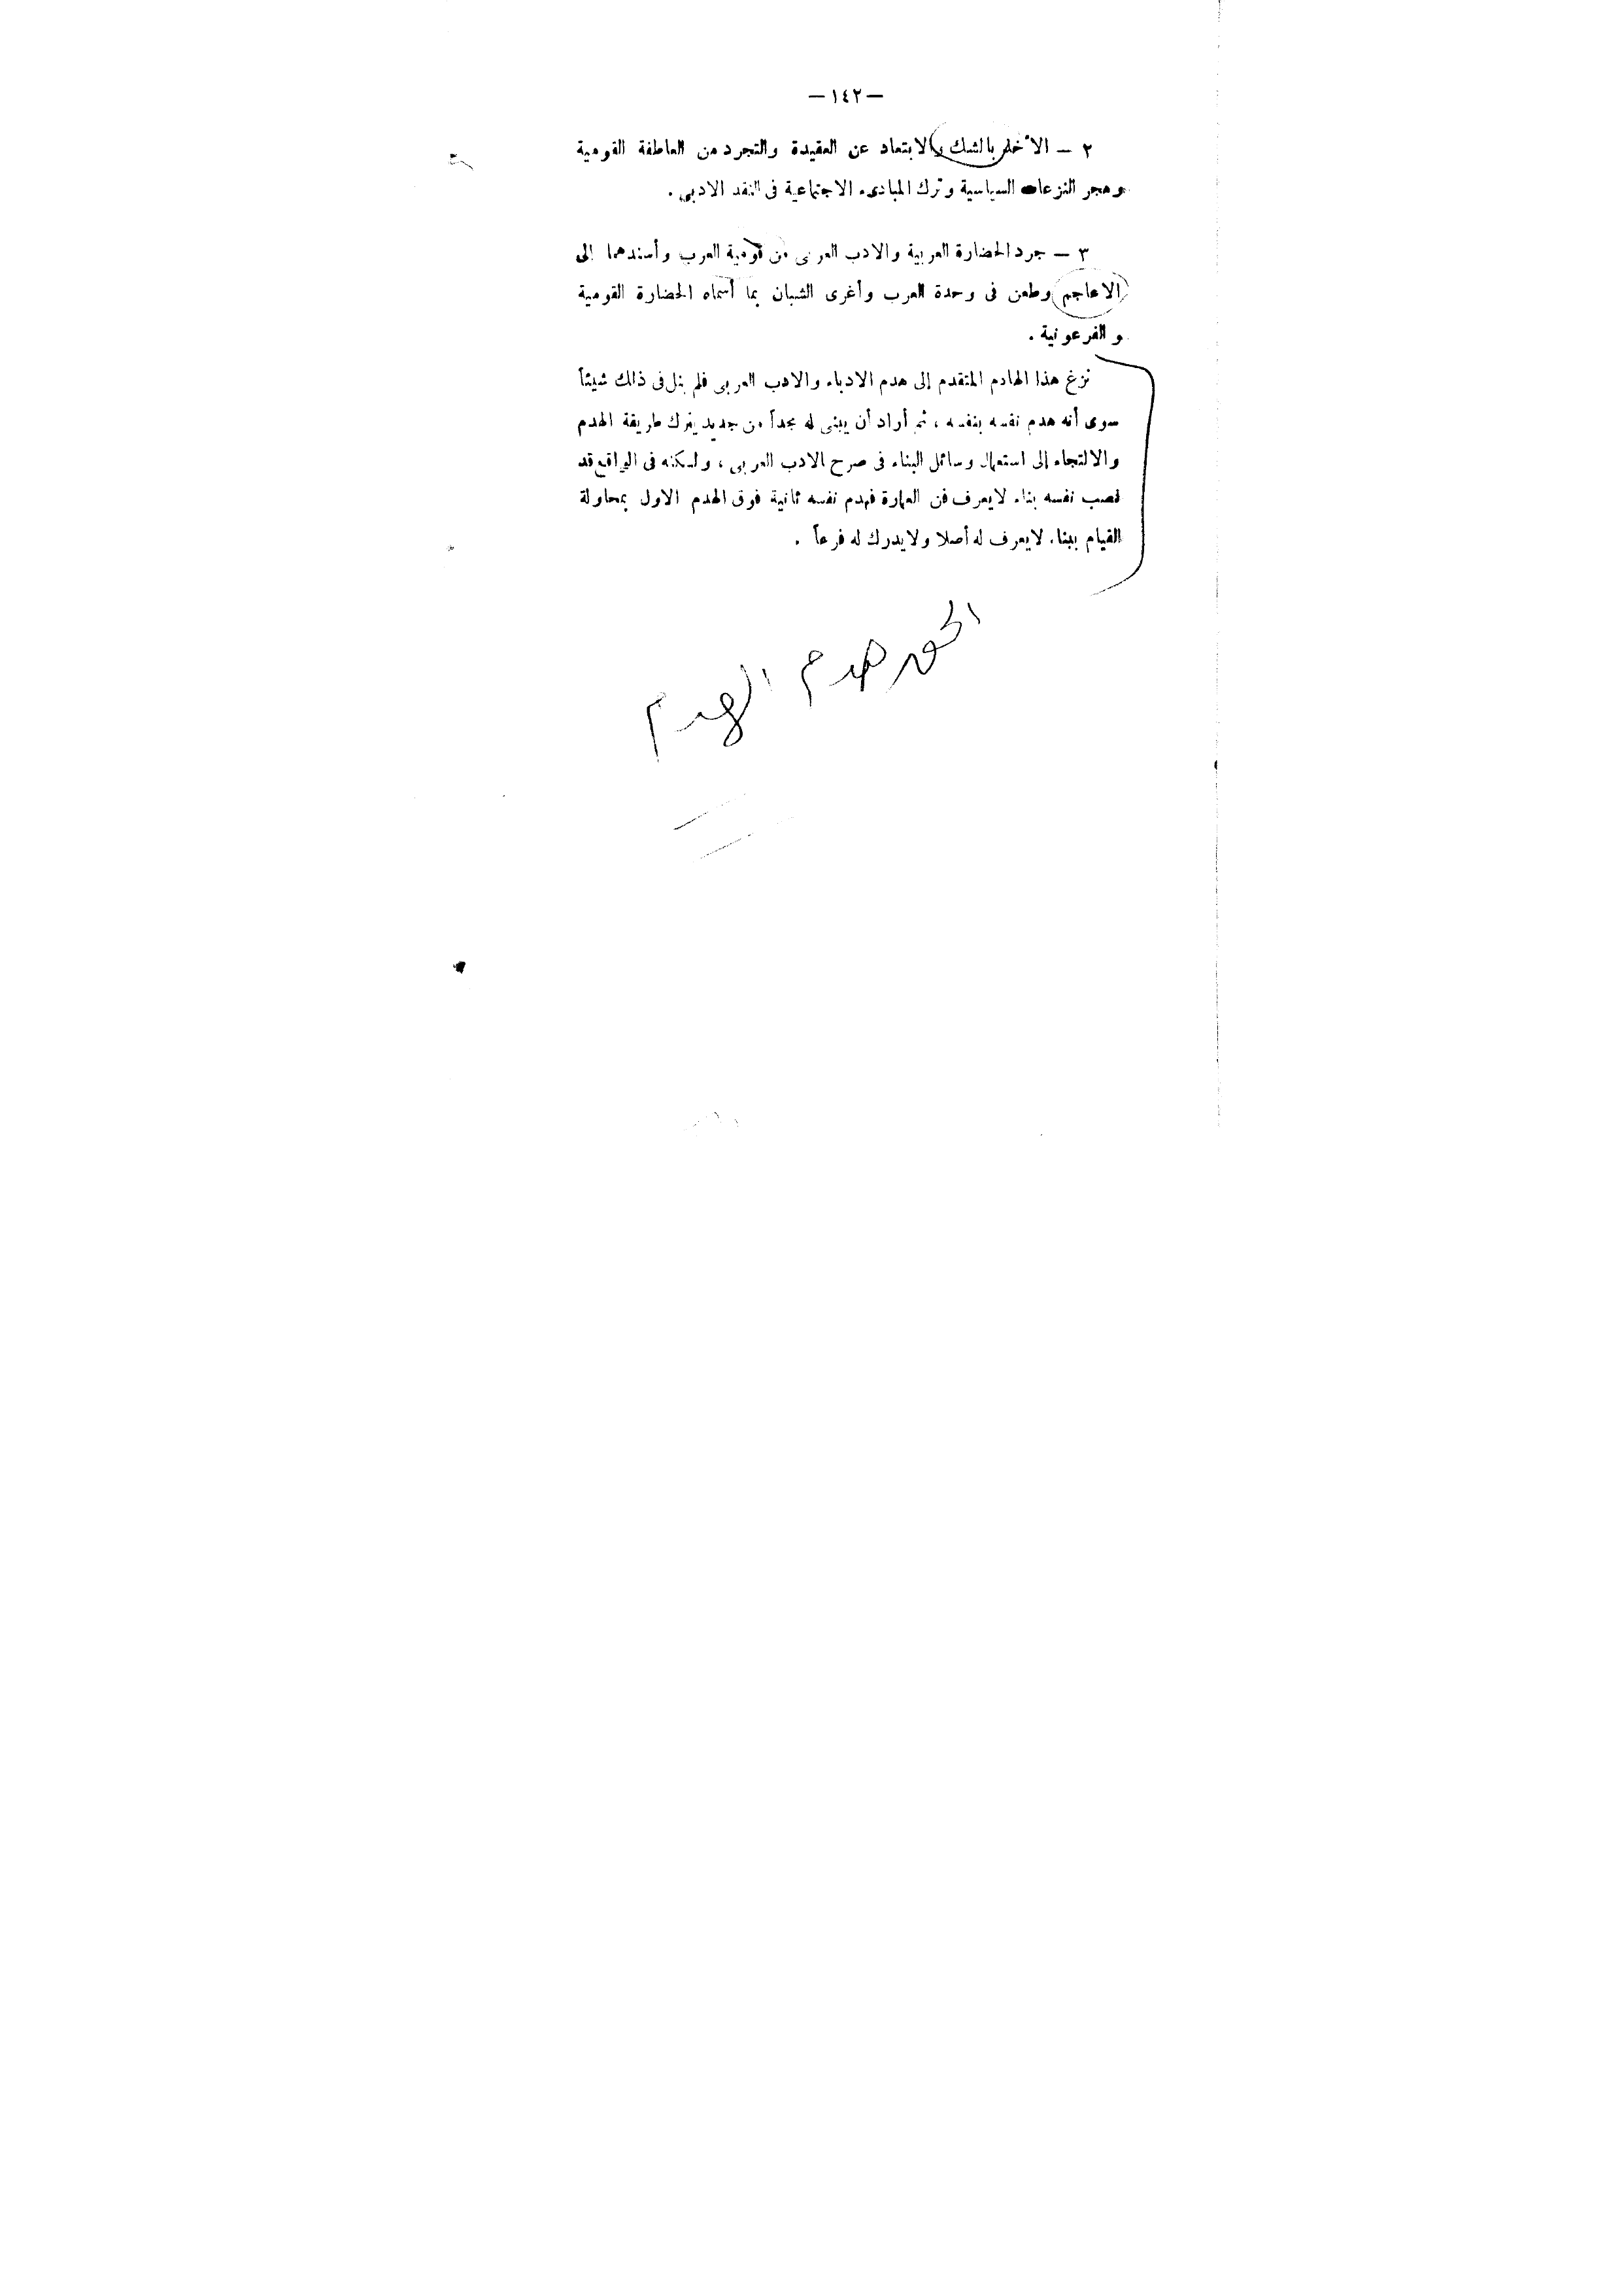 — ١٤٢ —
٢ — الأخذ بالشك والابتعاد عن العقيدة والتجرد من العاطفة القومية
وهجر النزعات السياسية وترك المبادىء الاجتماعية فى النقد الادبى .
٣ — جرد الحضارة العربية والادب العربى من قومية العرب وأسندهما إلى
الاعاجم وطعن فى وحدة العرب وأغرى الشبان بما أسماه الحضارة القومية
والفرعونية .
نزغ هذا الهادم المتقدم إلى هدم الادباء والادب العربى فلم ينل فى ذلك شيئاً
سوى أنه هدم نفسه بنفسه ، ثم أراد أن يبنى له مجداً من جديد بترك طريقة الهدم
والالتجاء إلى استعمال وسائل البناء فى صرح الادب العربى ، ولكنه فى الواقع قد
نصب نفسه بناء لايعرف فن العمارة فهدم نفسه ثانية فوق الهدم الاول بمحاولة
القيام ببناء لايعرف له أصلا ولايدرك له فرعاً .
الحق هدم الهدم